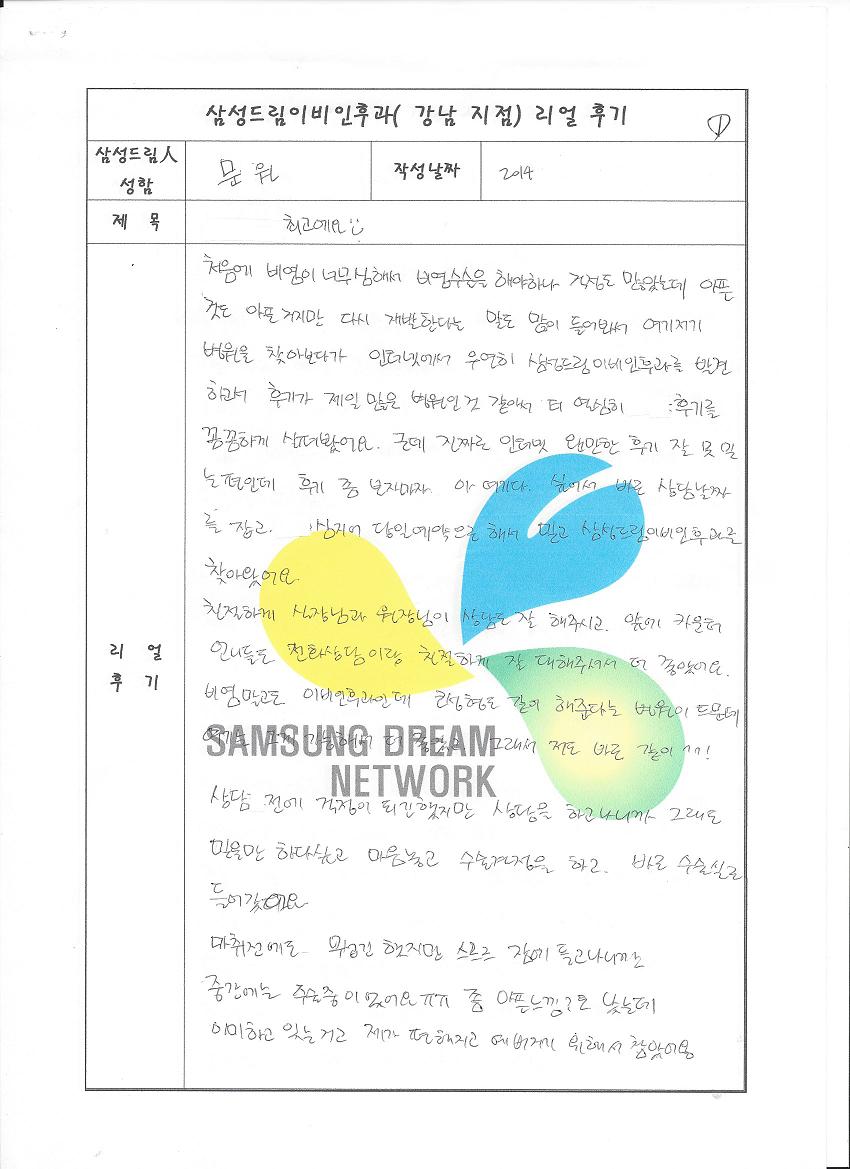 삼성드림이비인후과( 강남 지점) 리얼 후기
①
삼성드림人 성함
문 원
작성날짜
2014
제 목
최고에요
리 얼 후 기
처음에 비염이 너무심해서 비염수술을 해야하나 걱정도 많았는데 아픈
것도 아플 거지만 다시 재발한다는 말도 많이 들어봐서 여기저기
병원을 찾아보다가 인터넷에서 우연히 삼성드림이비인후과를 발견
하고서 후기가 제일 많은 병원인것 같아서 더 열심히 후기를
꼼꼼하게 살펴봤어요. 근데 진짜로 인터넷 왠만한 후기 잘 못 믿
는편인데 후기 좀 보자마자 아 여기다. 싶어서 바로 상담날짜
를 잡고. 심지어 당일예약으로 해서 믿고 삼성드림이비인후과를
찾아왔어요
친절하게 실장님과 원장님이 상담도 잘 해주시고. 앞에 카운터
언니들도 전화상담이랑 친절하게 잘 대해주셔서 더 좋았어요.
비염말고도 이비인후과인데 코성형도 같이 해준다는 병원이 드문데
여기는 그게 가능해서 더 좋았고 그래서 저도 바로 같이^^!
SAMSUNG DREAM
NETWORK
상담 전에 걱정이 되긴했지만 상담을 하고나니까 그래도
믿을만 하다싶고 마음놓고 수술결정을 하고. 바로 수술실로
들어갔어요
마취전에도 무섭긴 했지만 스르르 잠에 들고나니까는
중간에는 수술중이었어요ㅠㅠ 좀 아픈느낌?도 났는데
이미하고 있는거고 제가 편해지고 예뻐지기 위해서 참았어용